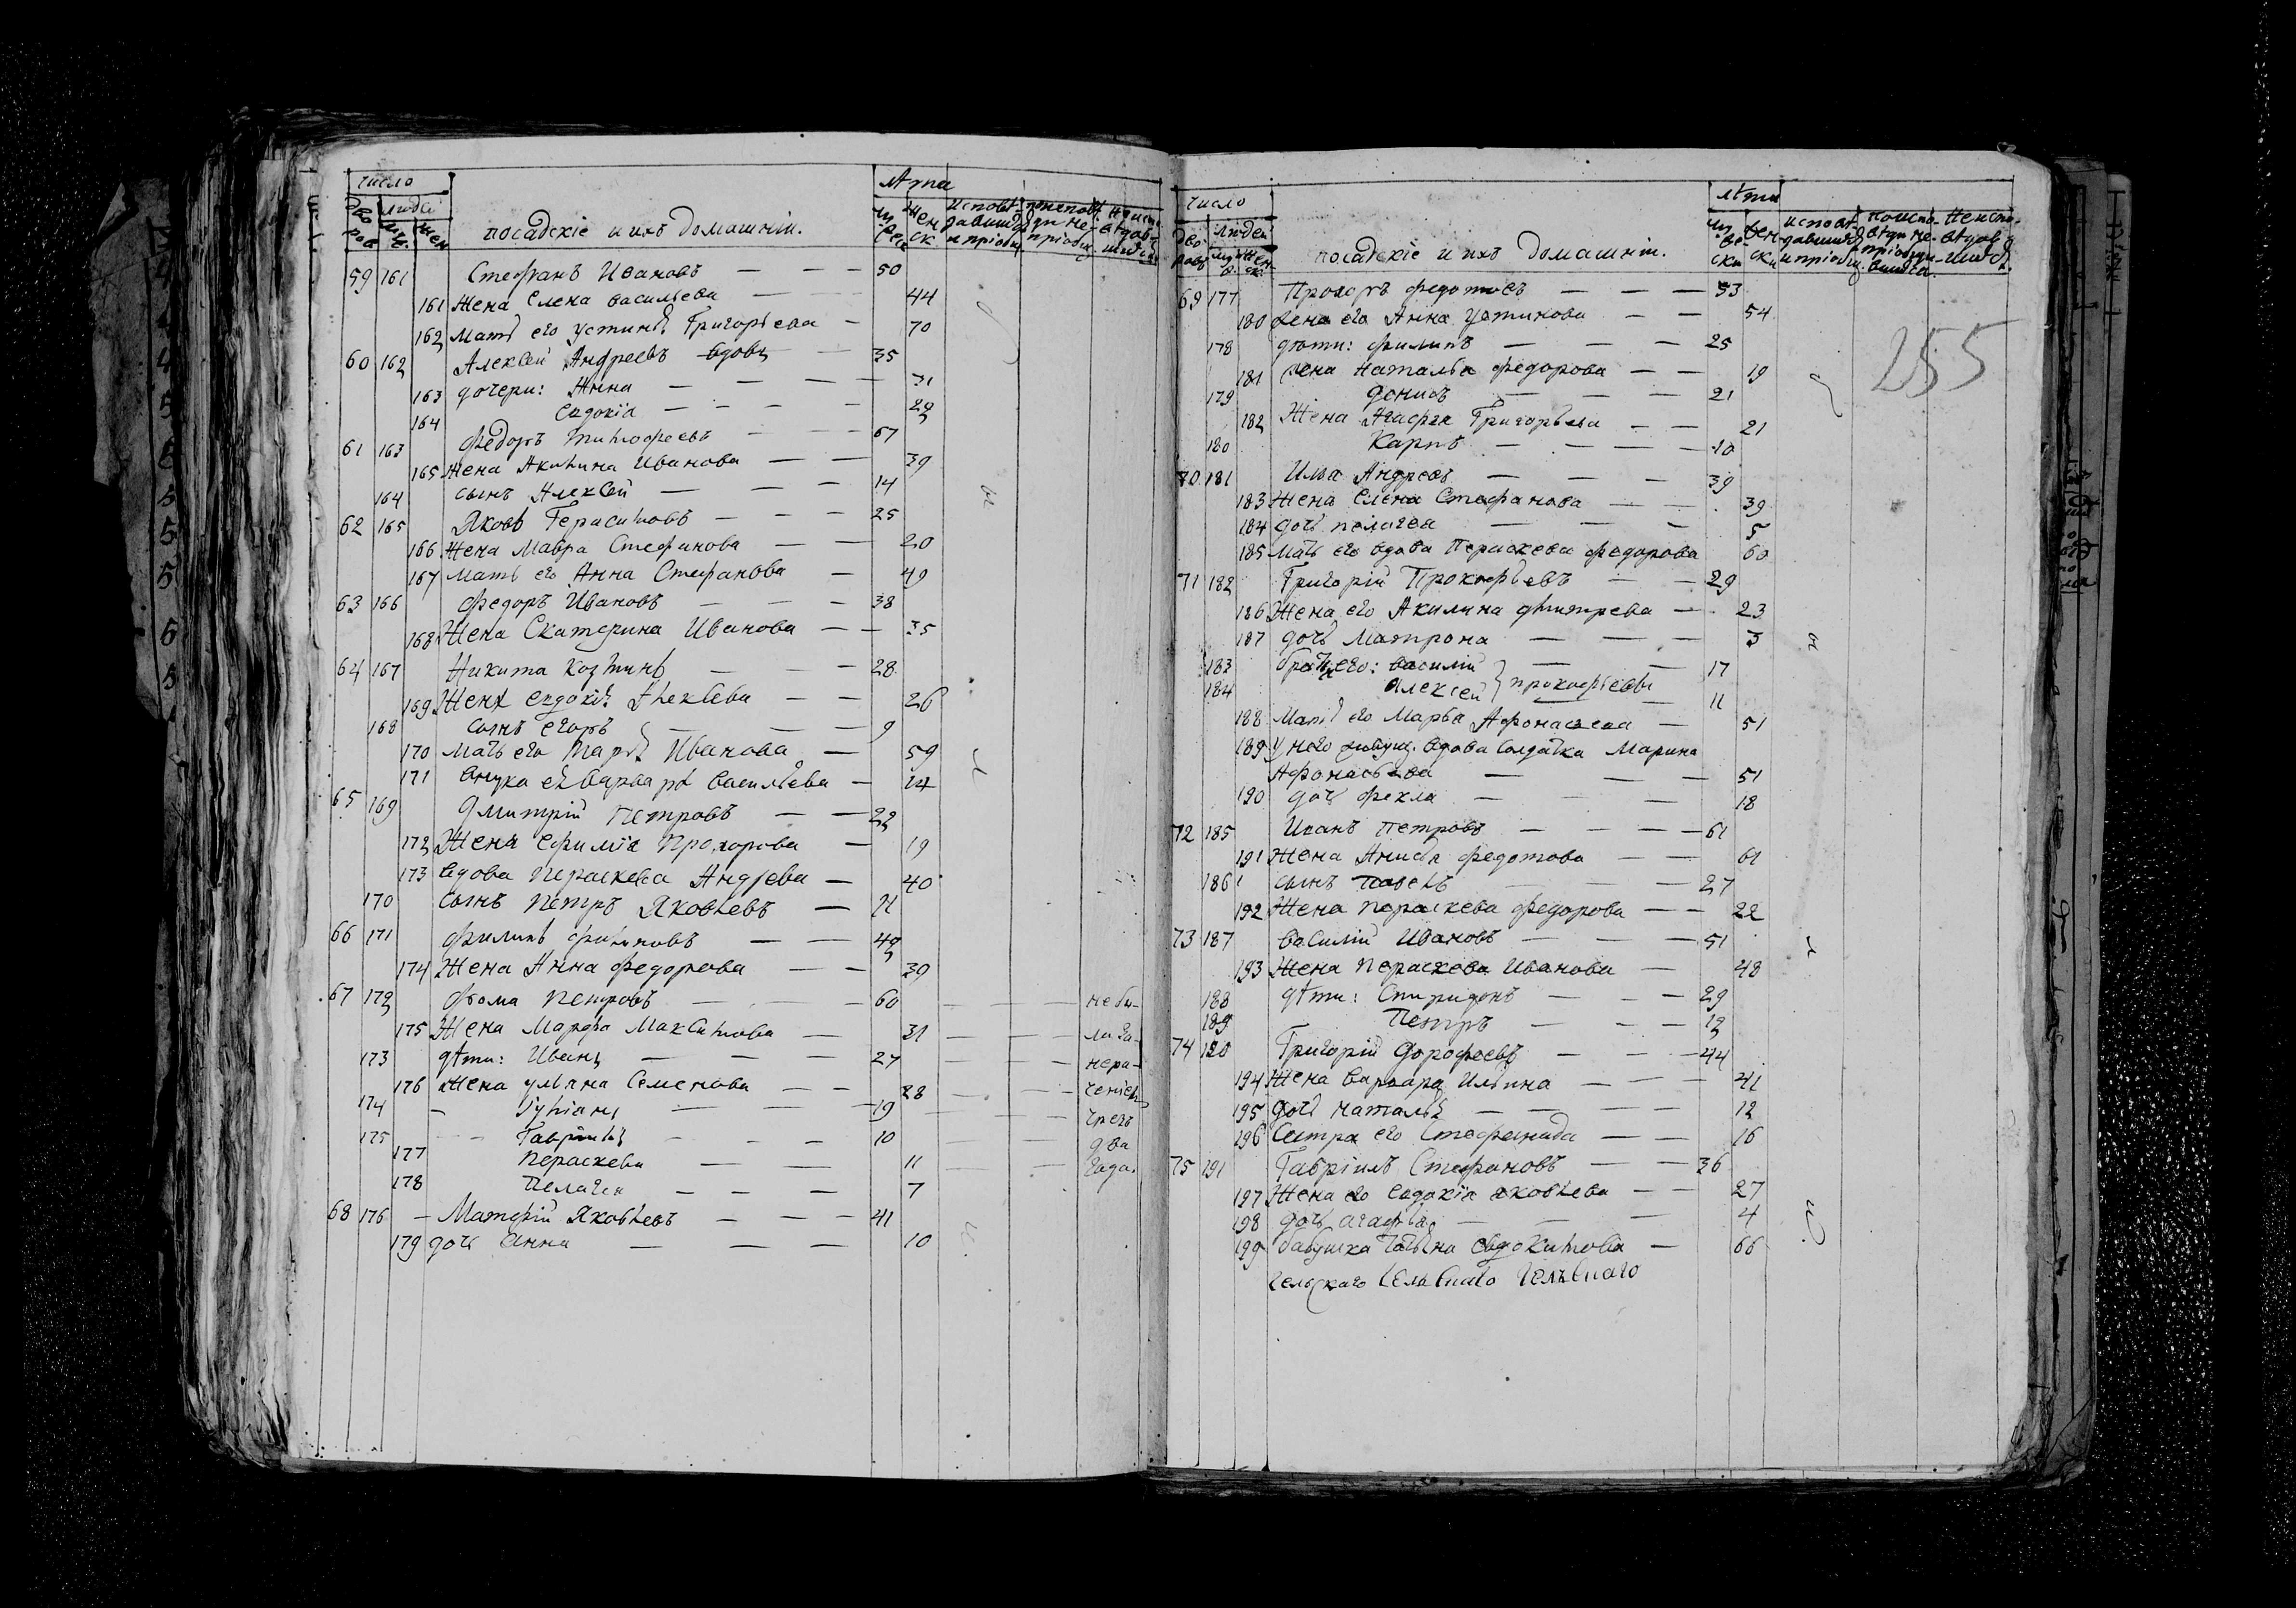 число
лѣта
дворов
людей
муж.
жен.
посадскіе и ихъ домашніи.
59 161 Стефанъ Ивановъ — — — 50
161 Жена Елена васильева — 44
162 Мать его устинья Григорьева — 70
60 162 Алексѣй Андреевъ вдовъ — 35
163 дочери: Анна — — — — 31
164 Евдокіа — — — — 29
61 163 Федоръ тимофеевъ — — 67
165 Жена Акилина Иванова — — 39
164 сынъ Алексѣй — — — 14
62 165 Яковъ Герасимовъ — — — 25
166 Жена Мавра Стефанова — — 20
167 мать его Анна Стефанова — 49
63 166 Федоръ Ивановъ — — — 38
168 Жена Екатерина Иванова — — 35
64 167 Никита Козминъ — — 28
169 Жена евдокія Алексѣева — — 26
168 сынъ егоръ — — — 9
170 мать его Марья Иванова — 59
171 внука ея варвара васильева — 14
65 169 Дмитрій Петровъ — — 22
172 Жена ефиміа Прохорова — 19
173 вдова Параскева Андреева — 40
170 сынъ Петръ Яковлевъ — 11
66 171 филипъ филиповъ — — 49
174 Жена Анна федорова — — 39
67 172 фома Петровъ — — — 60 — — — небы-
175 Жена Марфа Максимова — 31 — — — ли за-
173 дѣти: Иванъ — — — 27 — — — нера-
176 Жена ульяна Семенова — — 28 — — — ченіемъ
174 — Гуріанъ — — — 19 — — — чрезъ
175 — — Гавріилъ — — — 10 — — два
177 Параскева — — 11 — — года.
178 Пелагея — — — 7
68 176 — Матфій Яковлевъ — — — 41
179 дочь Анна — — — 10
число
лѣта
людей
посадскіе и ихъ домашніи.
255
69 177 Прохоръ федотовъ — — — 53
180 Жена его Анна Устинова — — 54
178 дѣти: филипъ — — — 25
181 Жена Наталья федорова — — 19
179 Денисъ — — — 21
182 Жена Агафья Григорьева — — 21
180 Карпъ — — — — 10
70 181 Илья Андреевъ — — — 39
183 Жена Елена Стефанова — — 39
184 дочь пелагея — — — 5
185 мать его вдова Параскева федорова 60
71 182 Григорій Прокофьевъ — — 29
186 Жена его Акилина дмитрева — 23
187 дочь Матрона — — — 3
183 братья его: василій — — 17
184 Алексей } прокофьевы — 11
188 Мать его Марья Афонасьева — 51
189 у него живущ. вдова солдатка Марина
Афонасьева — — — 51
190 дочь фекла — — — 18
72 185 Иванъ Петровъ — — — — 61
191 Жена Анисья федотова — — 61
186 сынъ Павелъ — — — 27
192 Жена параскева федорова — — 22
73 187 василій Ивановъ — — — 51
193 Жена Параскева Иванова — 48
188 дѣти: Спиридонъ — — — 29
189 Петръ — — — 19
74 190 Григорій Дорофеевъ — — — 44
194 Жена варвара Ильина — — — 41
195 дочь наталья — — — — 12
196 Сестра его Стефанида — — 16
75 191 Гавріилъ Стефановъ — — 36
197 Жена его евдокіа яковлева — — 27
198 дочь агафья — — — 4
199 бабушка татьяна евдокимова — 66